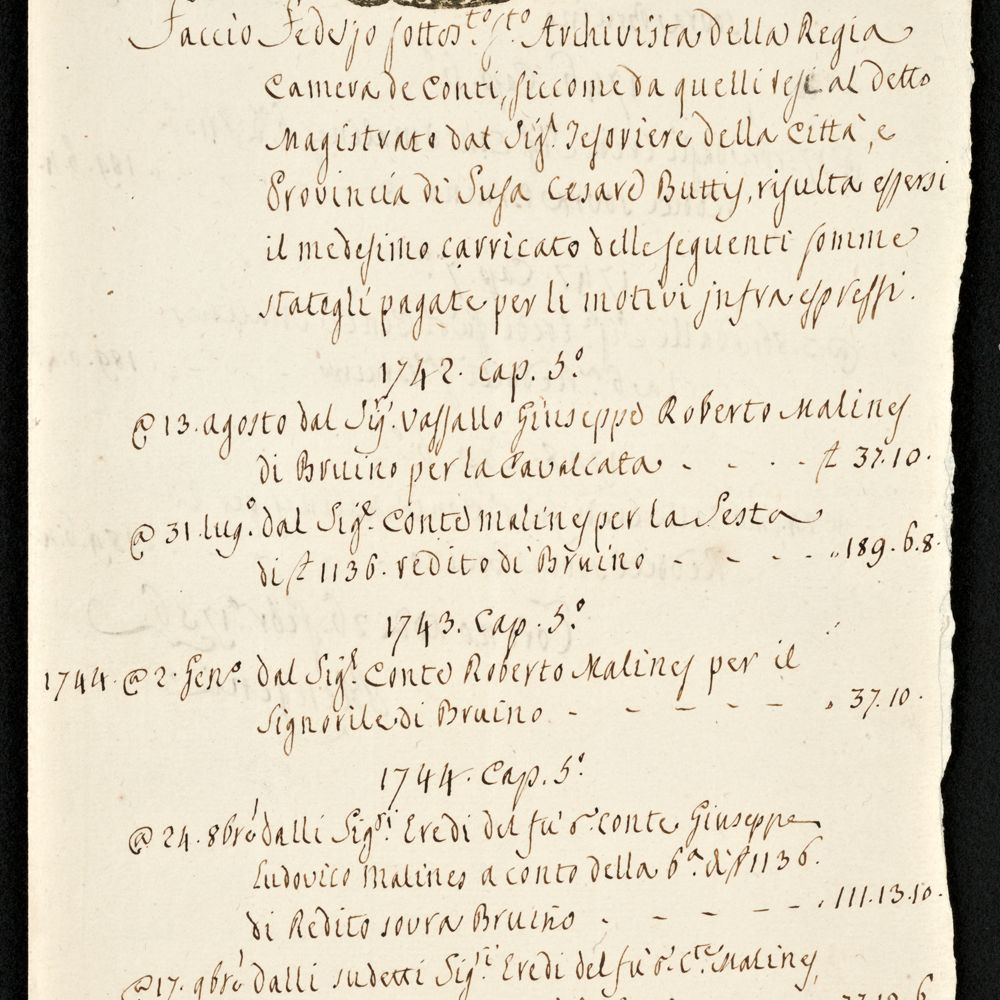 Faccio Fede jo sottos.to st.o Archivista della Regia
Camera de Conti, siccome da quelli resi al detto
Magistrato dal Sig.r Tesoriere della Città, e
Provincia di Susa Cesare Buttis, risulta essersi
il medesimo carricato delle seguenti somme
stategli pagate per li motivi infra espressi.
1742. Cap. 5.o
@ 13. agosto dal Sig.r Vassallo Giuseppe Roberto Malines
di Bruino per la Cavalcata - - - - £ 37.10.
@ 31. lug.o dal Sig.r Conte Malines per la Sesta
di £ 1136. redito di Bruino - - - - „ 189.6.8.
1743. Cap. 5.o
1744. @ 2. Gen.o dal Sig.r Conte Roberto Malines per il
Signorile di Bruino - - - - - „ 37.10.
1744. Cap. 5.o
@ 24. 8bre dalli Sig.ri Eredi del fu S.r Conte Giuseppe
Ludovico Malines a conto della 6.a di £ 1136.
di Redito sovra Bruino - - - - - „ 111.13.10.
@ 17. 9bre dalli sudetti Sig.ri Eredi del fu S.r C.te Malines